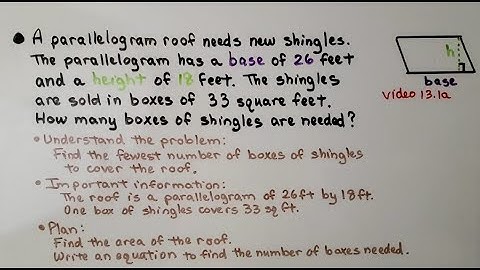 • A parallelogram roof needs new shingles.
The parallelogram has a base of 26 feet
and a height of 18 feet. The shingles
are sold in boxes of 33 square feet.
How many boxes of shingles are needed?
h
base
video 13.1a
• Understand the problem:
Find the fewest number of boxes of shingles
to cover the roof.
• Important information:
The roof is a parallelogram of 26ft by 18ft.
One box of shingles covers 33 sq ft.
• Plan:
Find the area of the roof.
Write an equation to find the number of boxes needed.